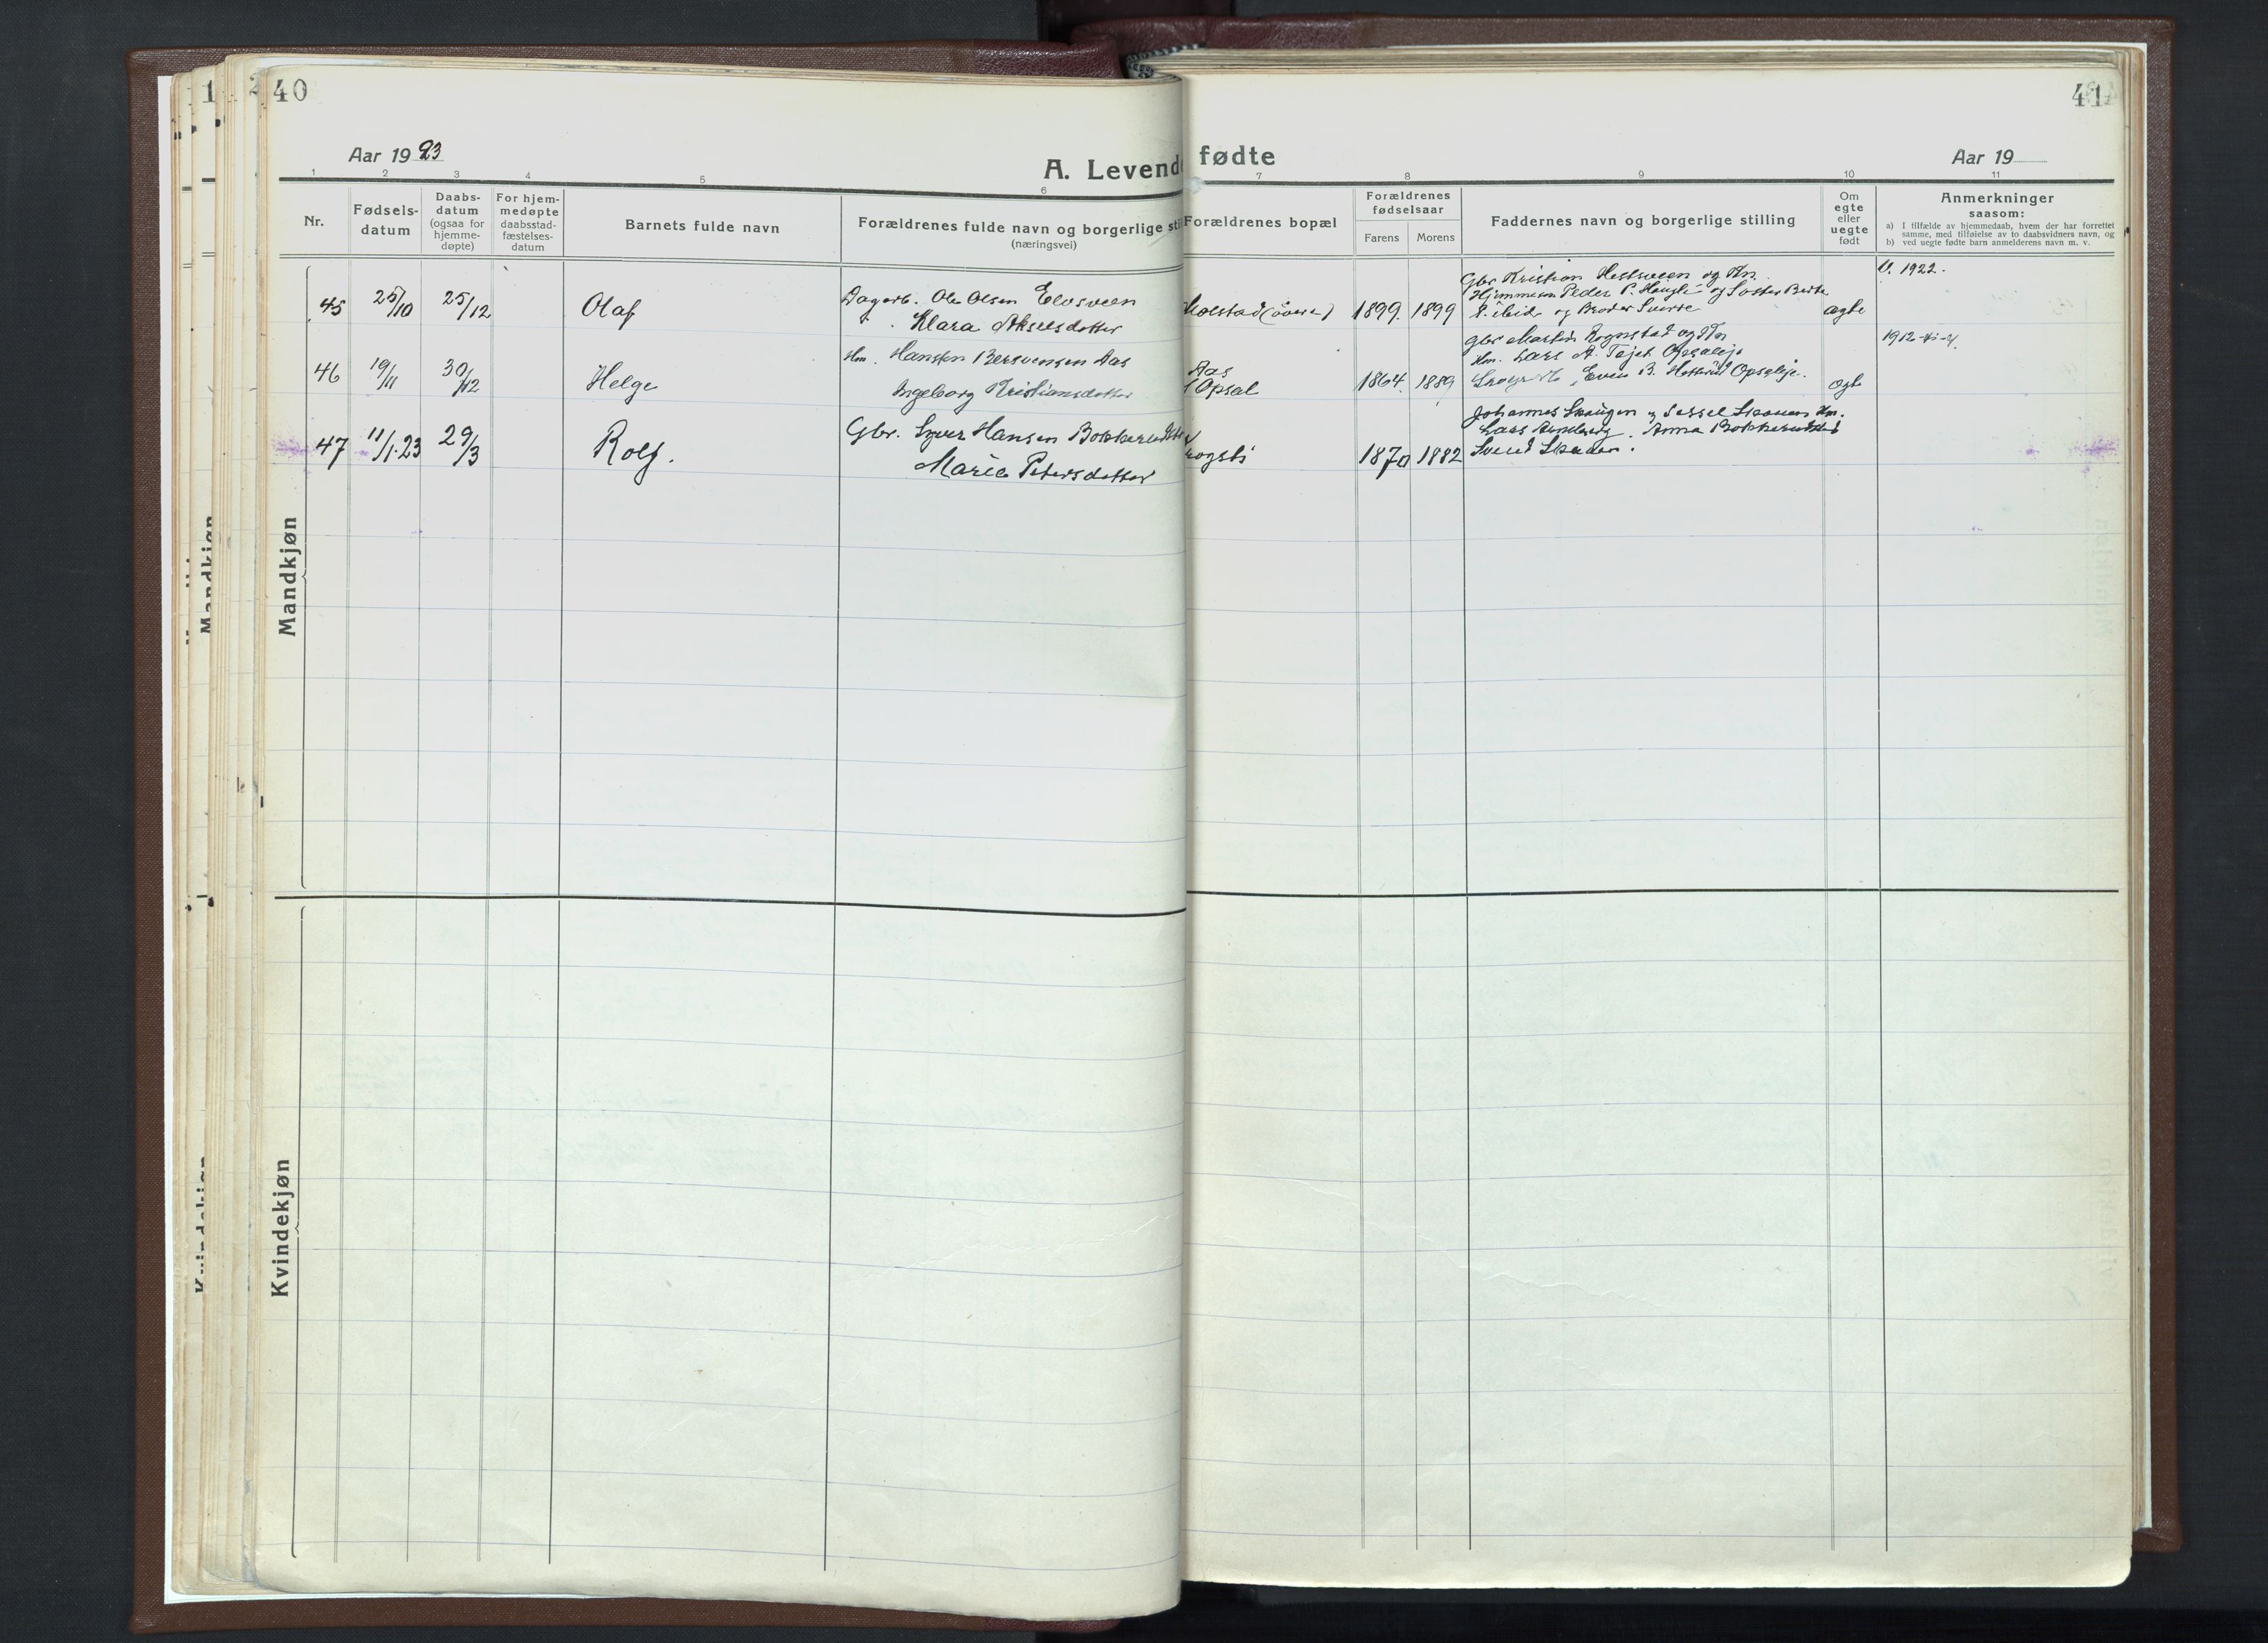 40
41
Aar 1923
A. Levende fødte
Aar 19
1 2 3 4 5 6 7 8 9 10 11
Nr.
Fødsels-
datum
Daabs-
datum
(ogsaa for
hjemme-
døpte)
For hjem-
medøpte
daabsstad-
fæstelses-
datum
Barnets fulde navn
Forældrenes fulde navn og borgerlige sti
(næringsvei)
Forældrenes bopæl
Forældrenes
fødselsaar
Farens Morens
Faddernes navn og borgerlige stilling
Om
egte
eller
uegte
født
Anmerkninger
saasom:
a) I tilfælde av hjemmedaab, hvem der har forrettet
samme, med tilføielse av to daabsvidners navn, og
b) ved uegte fødte barn anmelderens navn m. v.
Mandkjøn
45 25/10 25/12 Olaf
Dagarb. Ole Olsen Elvsveen
Klara Akselsdatter
Holstad (övre) 1899. 1899
Gbr Kristian Hestsveen og Kn.
Hjemmesn Peder P. Haugli og Søster Berte
og Broder Sverre
ægte
V. 1922.
46 19/11 30/12 Helge
Hm. Hansen Bersvensen Aas
Ingeborg Kristiansdatter
Aas
Opsal 1864. 1889
Gbr Martin Rognstad og Kn
Hm. Lars A. Tajet Opsaleje
Even B. Opsaleje.
egte
1912
47 11/1.23 29/3 Rolf.
Gbr. Syver Hansen
Marie Petersdatter
1870 1882
Johannes Skaugen og Sessel Skauen Hm.
Lars Anna
Svend
Kvindekjøn